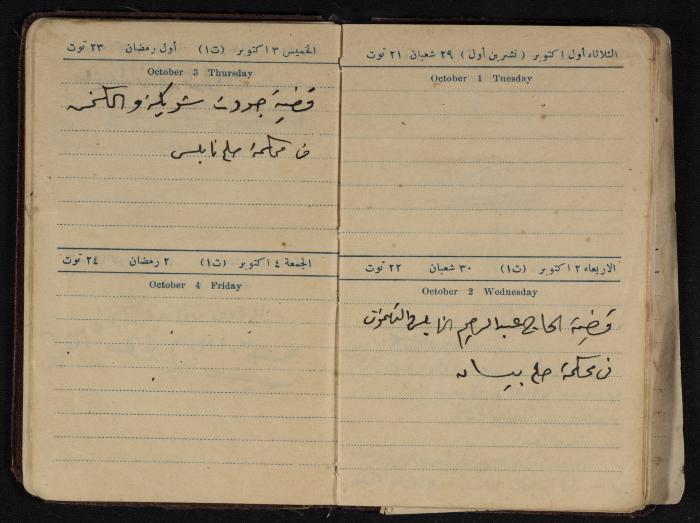 الثلاثاء أول اكتوبر ( تشرين أول ) ٢٩ شعبان ٢١ توت
October 1 Tuesday
الاربعاء ٢ اكتوبر (ت١) ٣٠ شعبان ٢٢ توت
October 2 Wednesday
قضية الحاج عبد الرحيم النابلسي
في محكمة صلح بيسان
الخميس ٣ اكتوبر (ت١) أول رمضان ٢٣ توت
October 3 Thursday
قضية جودت شويكة و
في محكمة صلح نابلس
الجمعة ٤ اكتوبر (ت١) ٢ رمضان ٢٤ توت
October 4 Friday